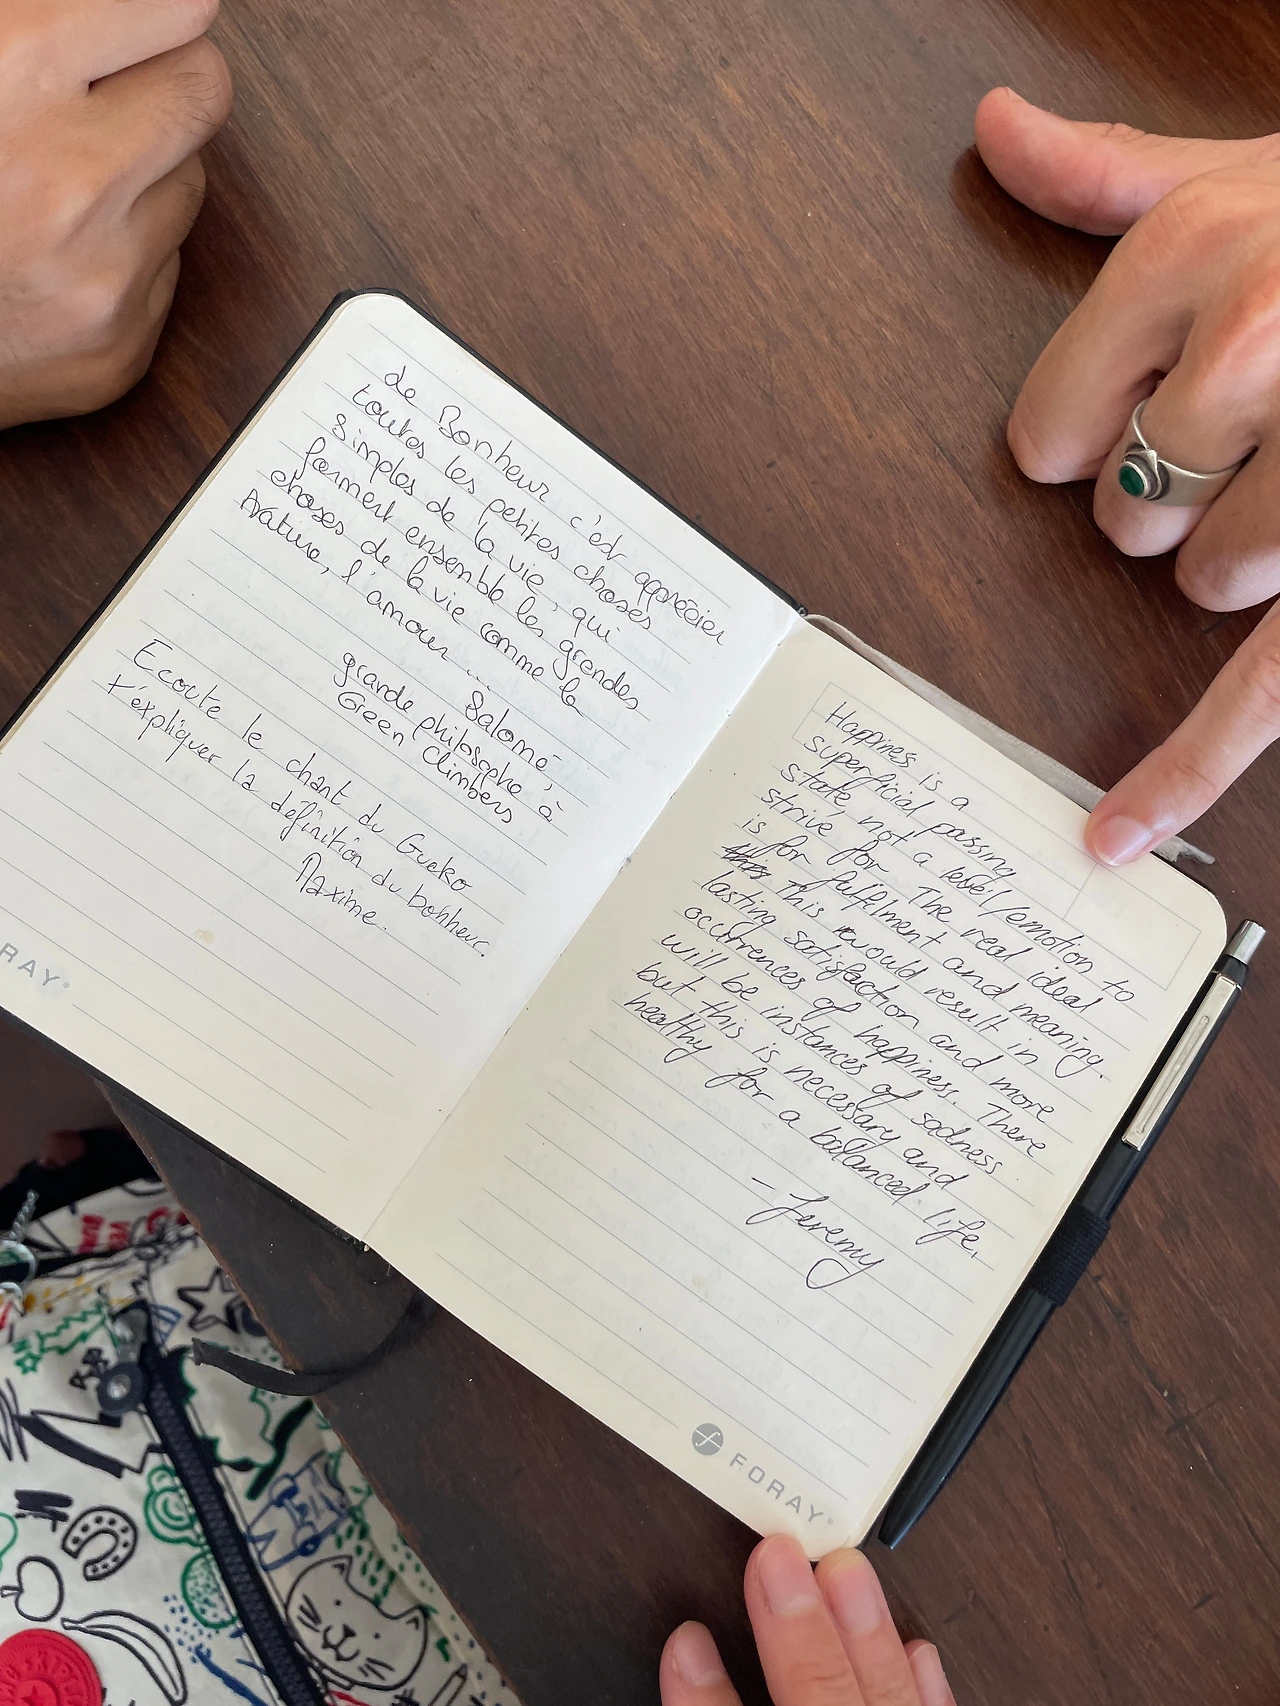 de Bonheur c'est apprécier
toutes les petites choses
simples de la vie, qui
forment ensemble les grandes
choses de la vie comme la
Nature, l'amour ...
Salomé,
grande philosophe à
Green Climbers
Ecoute le chant du Gueko
t'expliquer la définition du bonheur.
Maxime.
RAY
Happiness is a
superficial passing
state, not a level/emotion to
strive for. The real ideal
is for fulfilment and meaning.
this This would result in
lasting satisfaction and more
occurrences of happiness. There
will be instances of sadness
but this is necessary and
healthy for a balanced life.
- Jeremy
FORAY